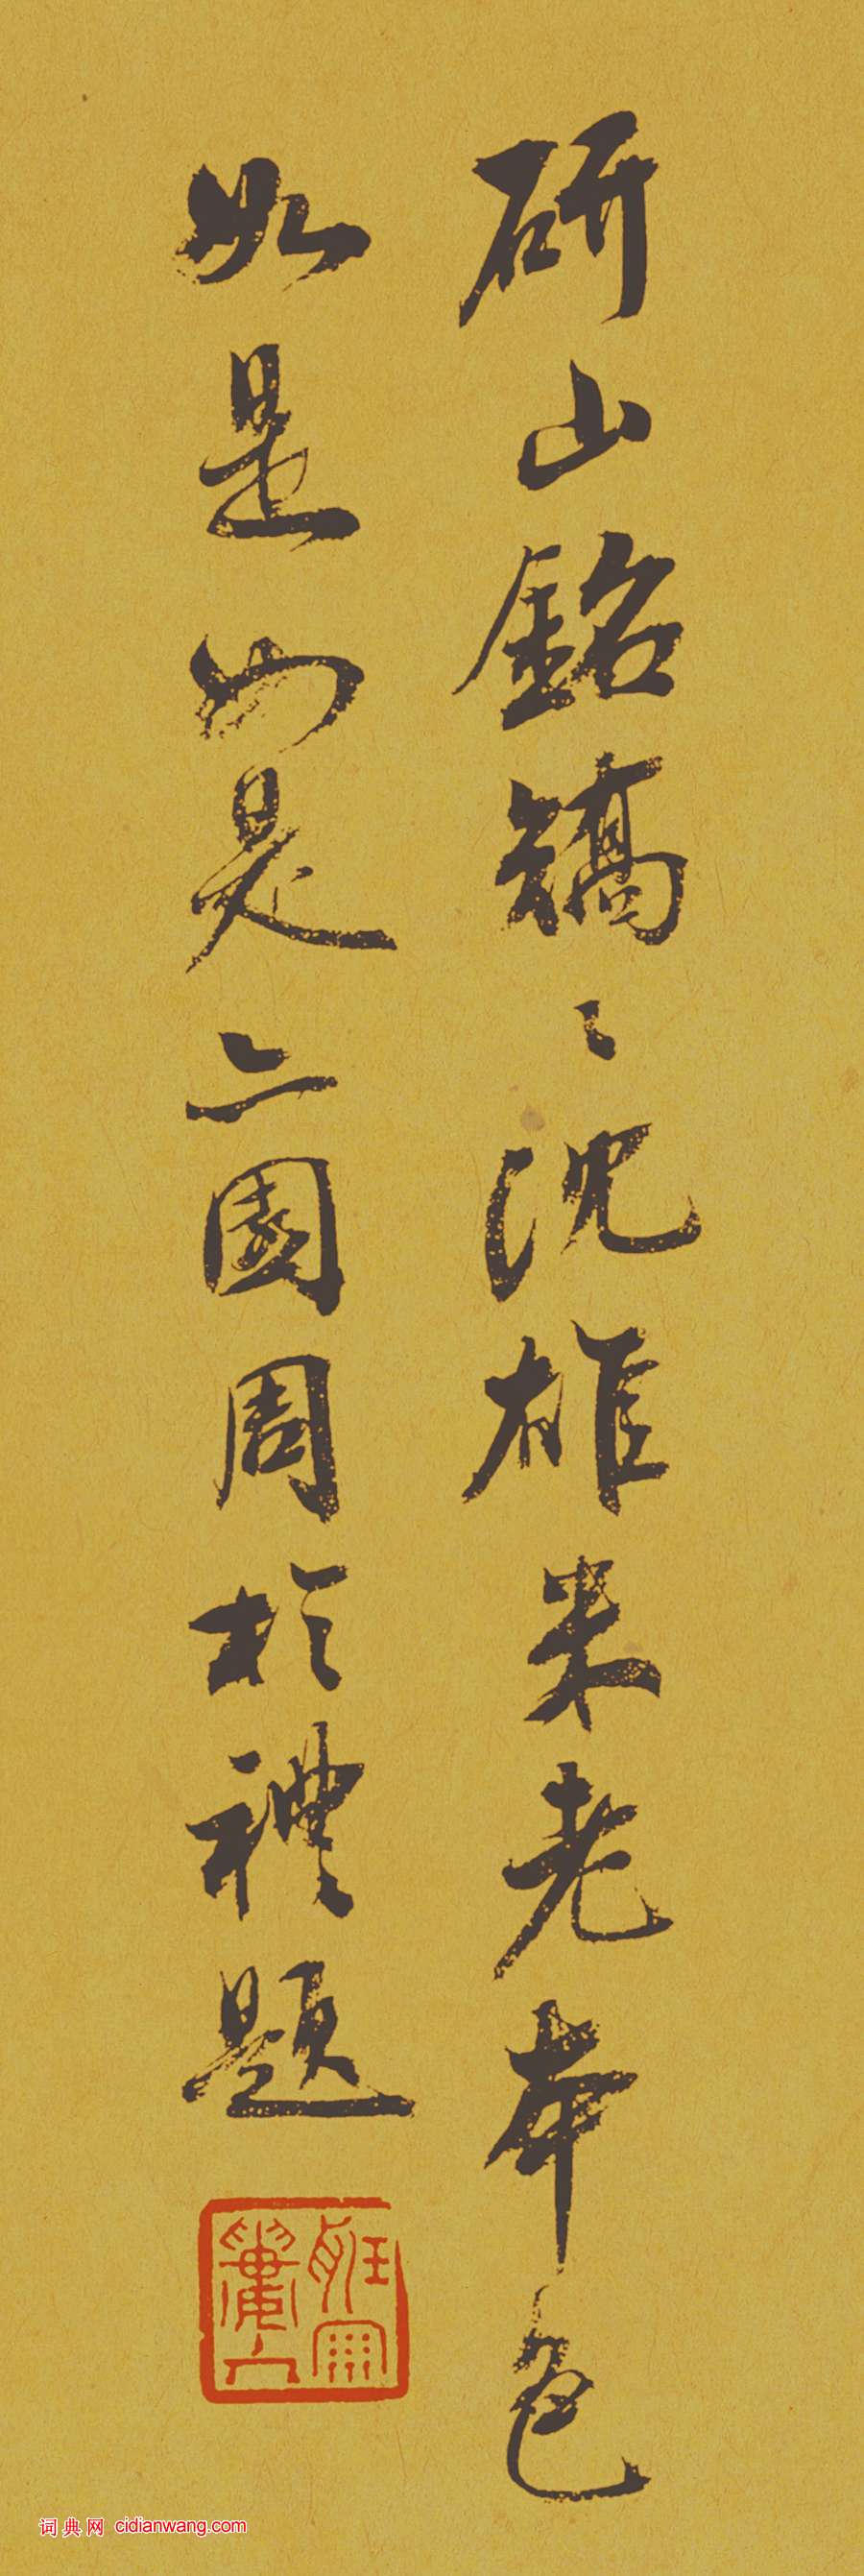 研山銘鎬〻沈雄米老本色
如是如是二園周於禮題
词典网 cidianwang.com